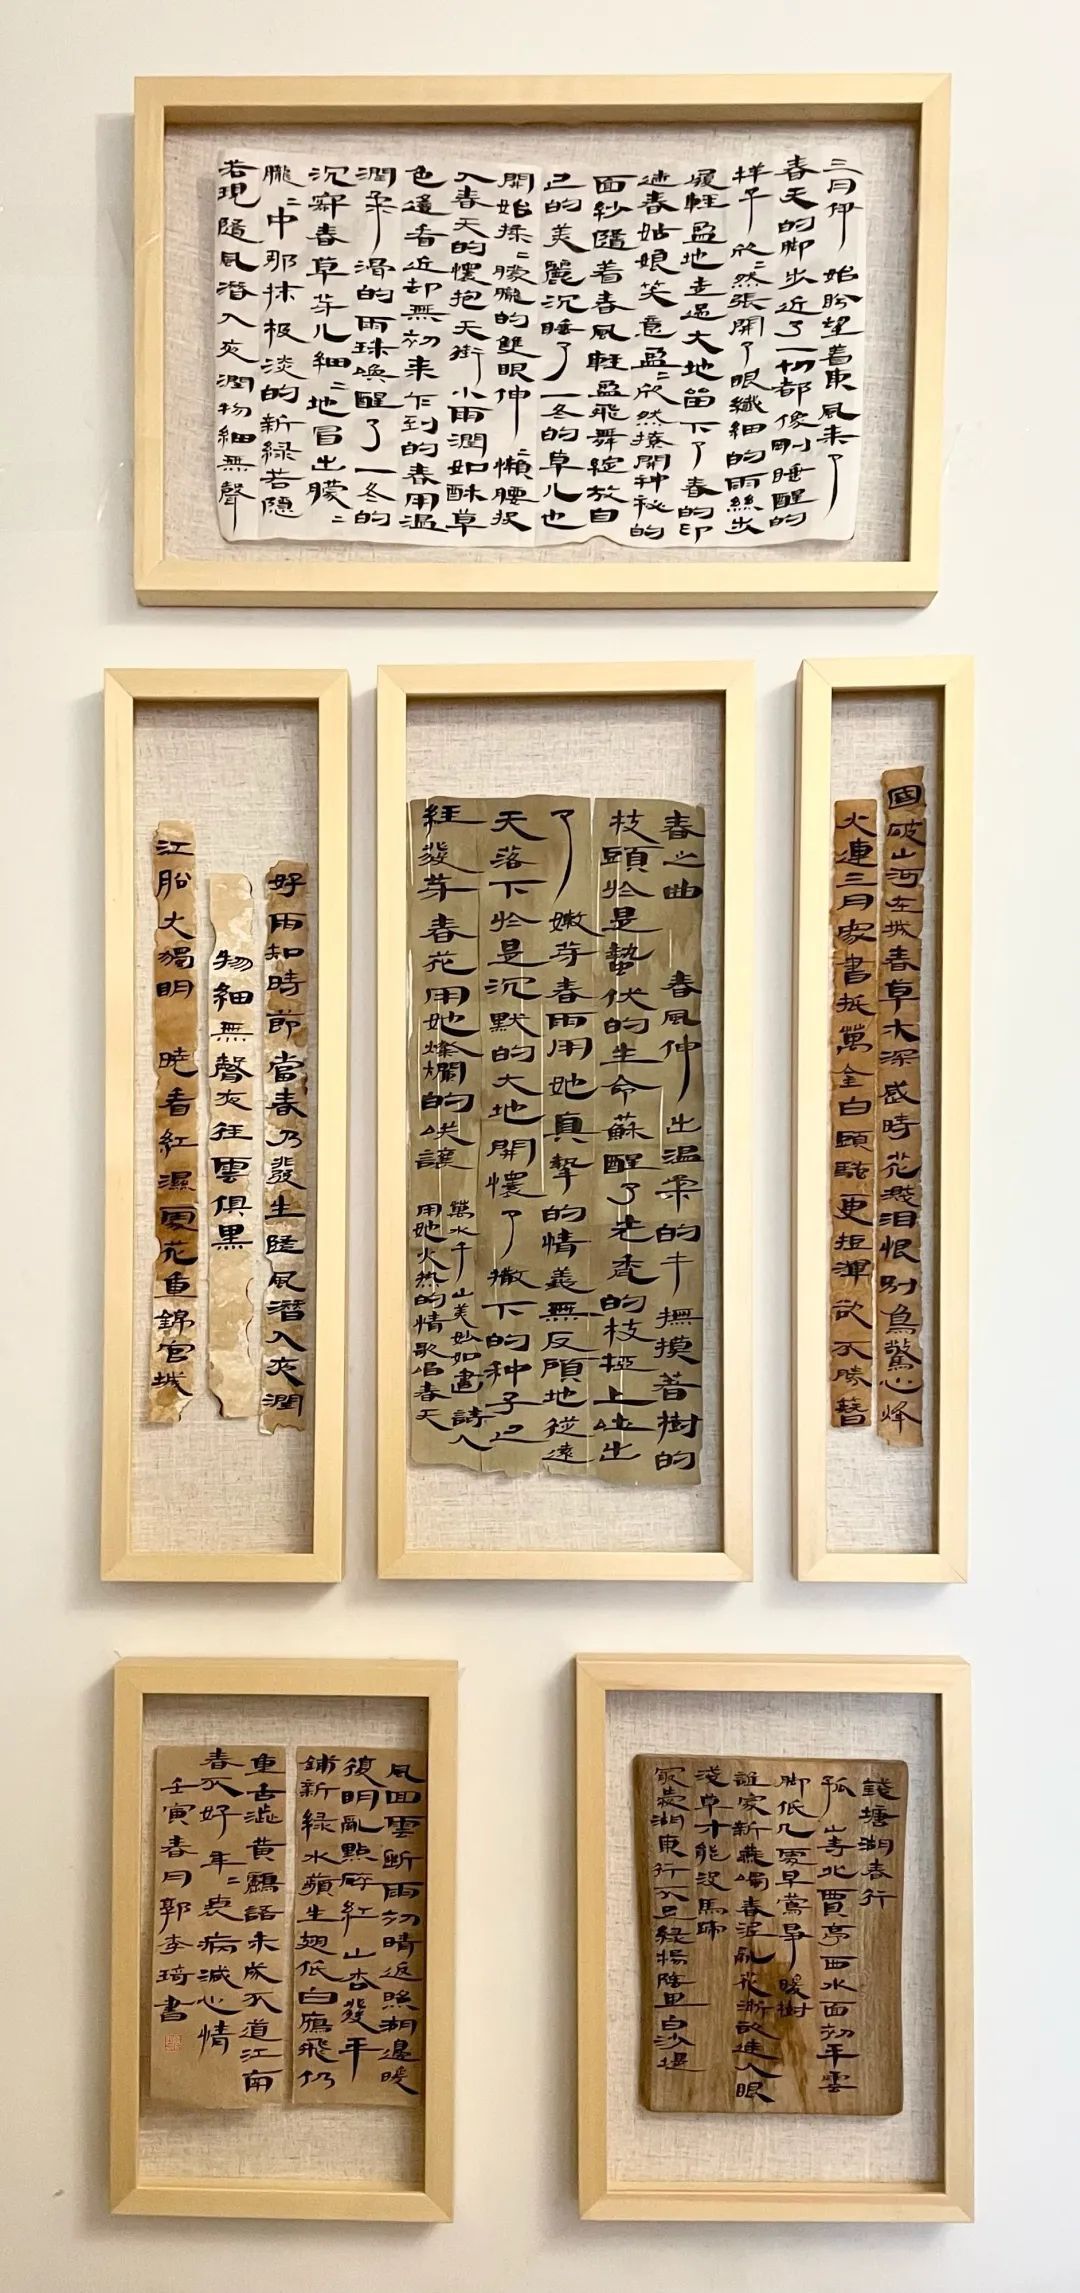 三月伊始盼望着東風来了
春天的脚步近了一切都像剛睡醒的
样子欣〻然張開了眼纖細的雨絲步
履輕盈地走過大地留下了春的印
迹春姑娘笑意盈〻欣然撩開神秘的
面紗隨着春風輕盈飛舞綻放自
己的美麗沉睡了一冬的草儿也
開始揉〻朦朧的雙眼伸〻懶腰投
入春天的懷抱天街小雨潤如酥草
色遥看近却無初来乍到的春用温
潤柔滑的雨珠唤醒了一冬的
沉寂春草芽儿細〻地冒出朦〻
朧〻中那抹极淡的新緑若隠
若現隨風潛入夜潤物細無聲
國破山河在城春草木深感時花濺泪恨别鳥驚心烽
火連三月家書抵萬金白頭騷更短渾欲不勝簪
春之曲春風伸出温柔的手撫摸着樹的
枝頭於是蟄伏的生命蘇醒了光秃的枝椏上吐出
了嫩芽春雨用她真摯的情義無反顧地從遠
天落下於是沉默的大地開懷了撒下的种子已
經發芽春花用她燦爛的笑讓
萬水千山美妙如畫詩人
用她火热的情歌唱春天
好雨知時節當春乃發生隨風潛入夜潤
物細無聲夜径雲俱黑
江船火獨明曉看紅濕處花重錦官城
錢塘湖春行
孤山寺北賈亭西水面初平雲
脚低几處早鶯争暖樹
誰家新燕啄春泥亂花漸欲迷人眼
淺草才能没馬蹄
最愛湖東行不足緑楊陰里白沙堤
風回雲断雨初晴返照湖邊暖
復明亂點碎紅山杏發平
鋪新緑水蘋生翅低白鴈飛仍
重舌澁黄鸝語未成不道江南
春不好年〻衰病減心情
壬寅春月郭李琦書